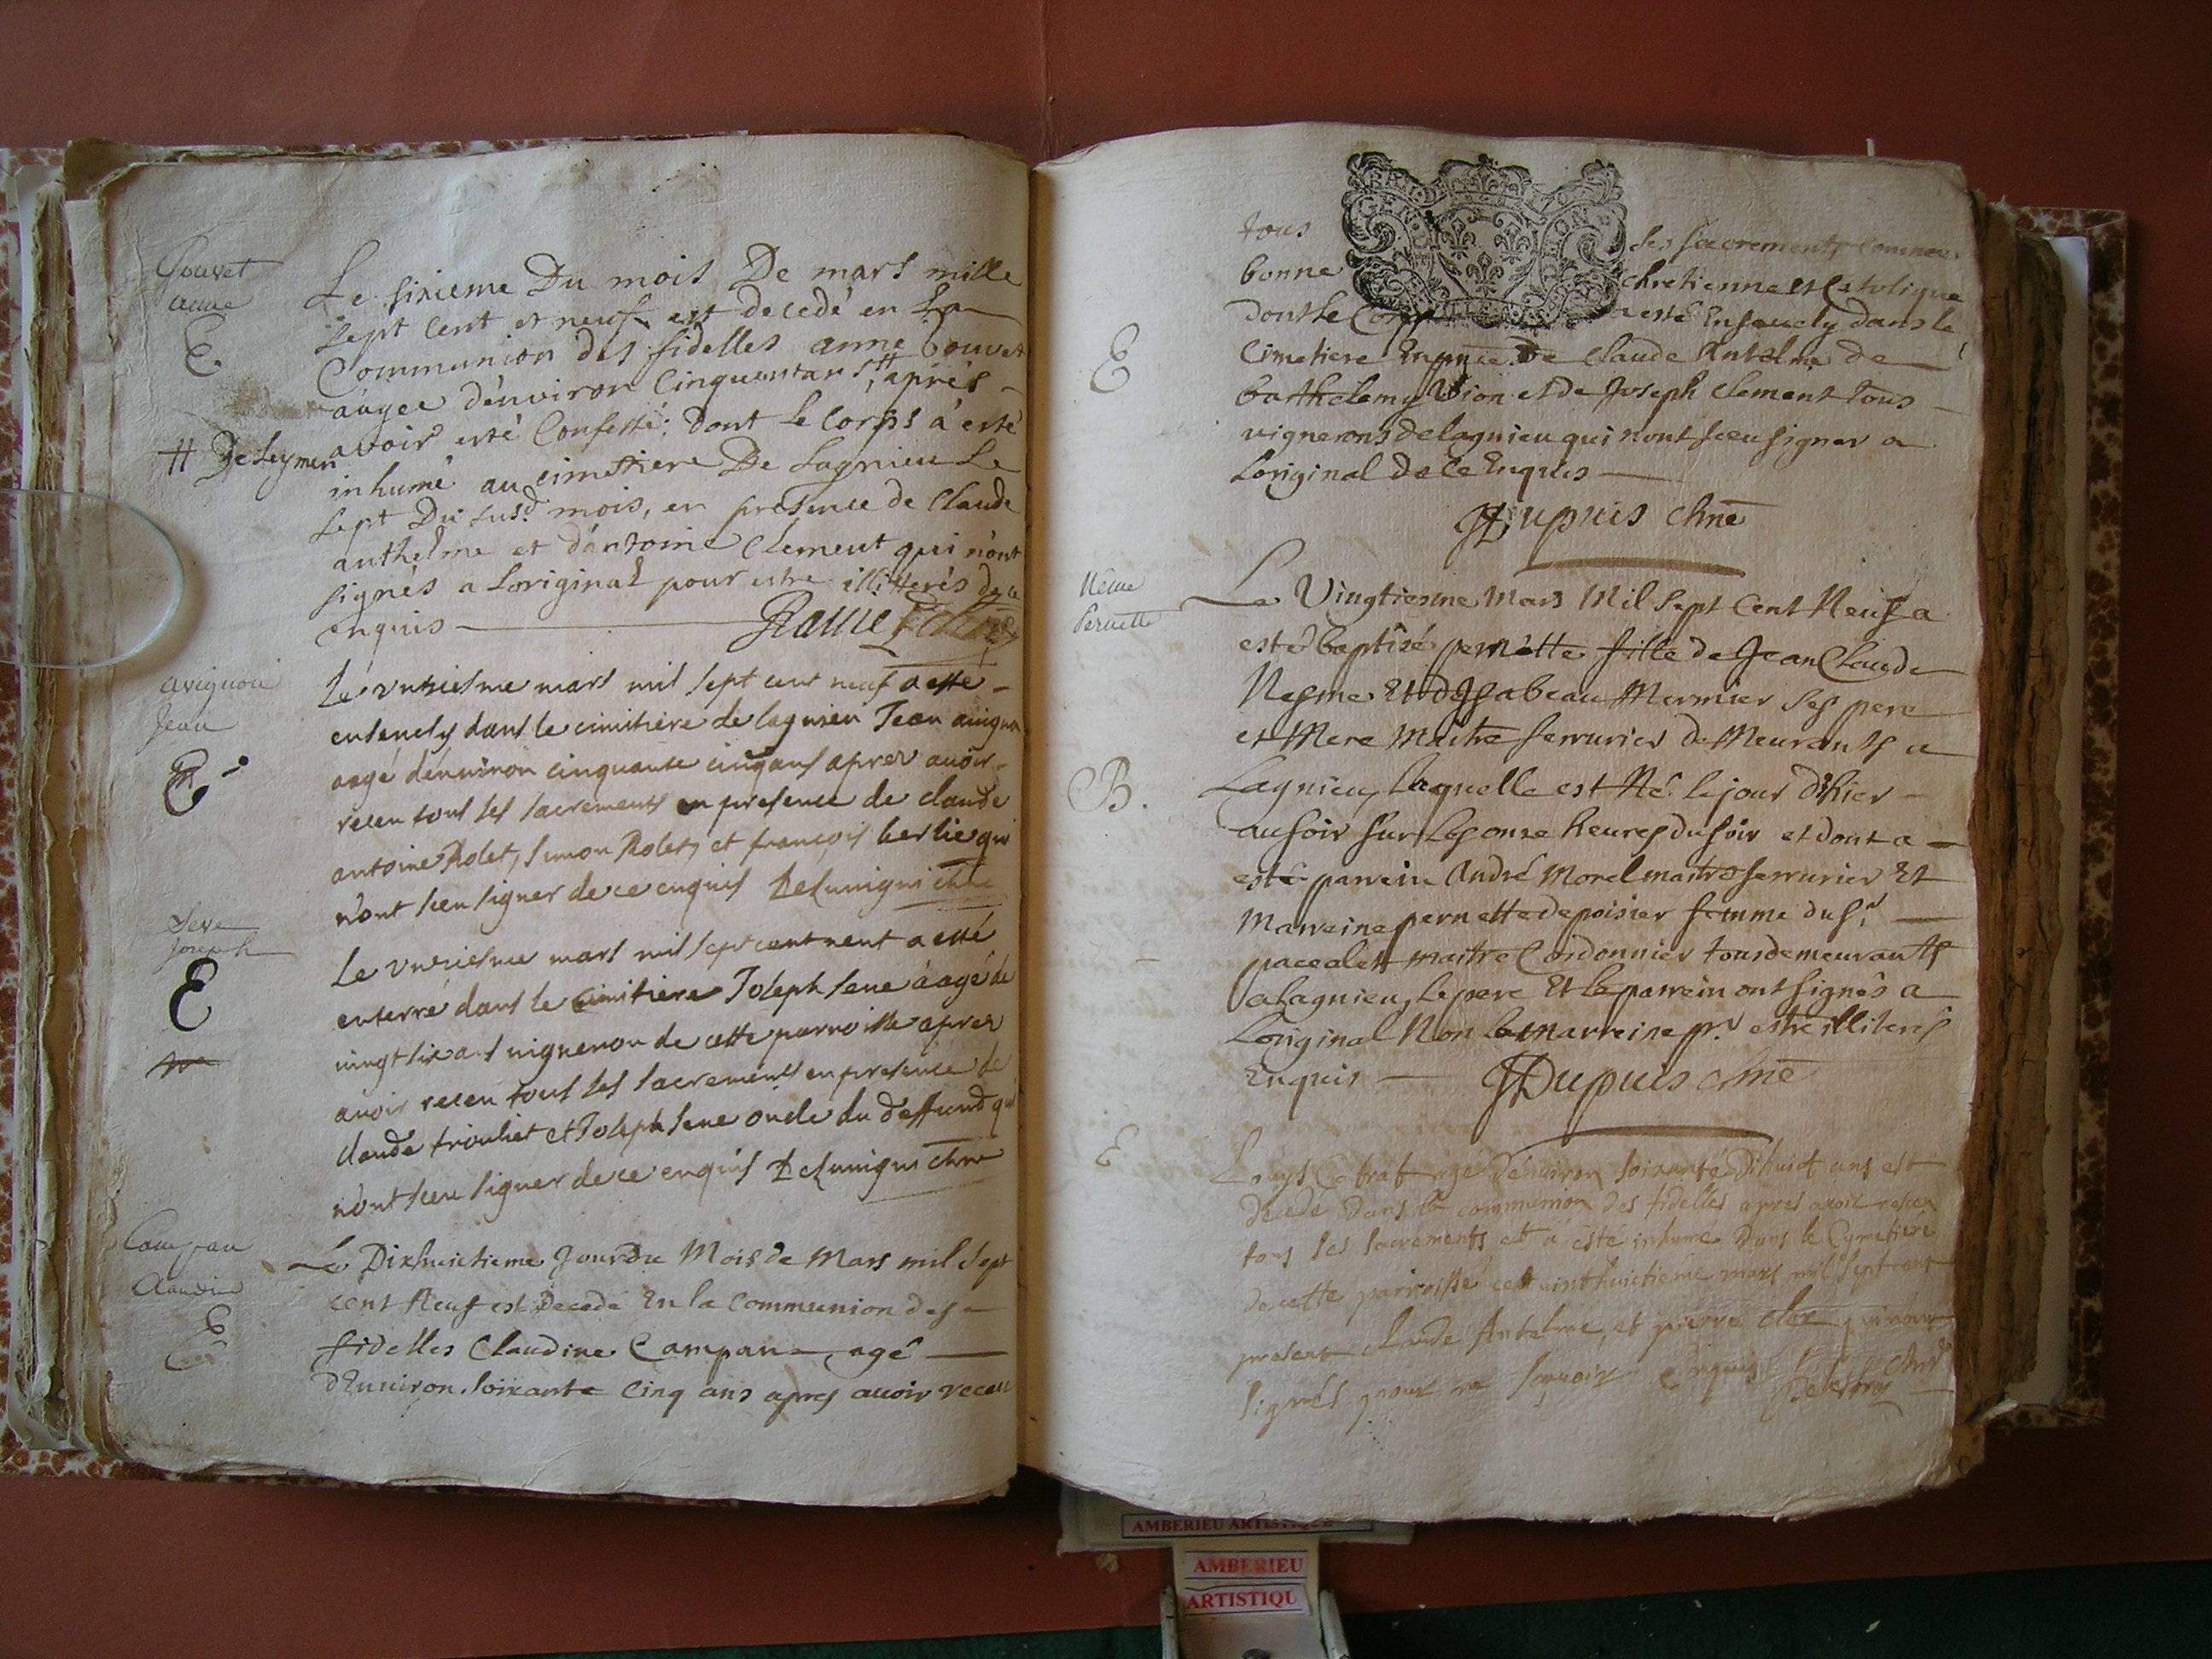 Gouvet
anne
E.
Le sixieme Du mois De mars mille
sept cent et neuf est decedé en La
Communion des fidelles anne Gouvet
augee d'environ Cinquantans, # aprés
# De Leymen
avoir esté Confessé; Dont le Corps à esté
inhumé au cimettiere De Lagnieu Le
sept Du susd. mois, en presence de Claude
anthelme et d'antoine Clement qui n'ont
signés a Loriginal pour estre illitterés de ce
enquis
avignon
Jean
E
Le unziesme mars mil sept cent neuf a esté
ensevely dans le cimitiere de lagnieu Jean auignon
aagé d'enuiron cinquante cinq ans aprez auoir
receu tous les sacrements en presence de claude
antoine Rolet, simon Rolet, et françois berlie qui
n'ont sceu signer de ce enquis Delunigni chne
Seve
Joseph
E
Le unziesme mars mil sept cent neuf a esté
enterré dans le cimitiere Joseph seue aagé de
uingt six ans uigneron de cette parroisse aprez
auoir receu tous les sacrements en presence de
claude trouliet et Joseph seue oncle du deffund qui
n'ont sceu signer de ce enquis Delunigni chne
Campan
Claudine
E
Le Dixhuictieme Jour du Mois de Mars mil sept
cent Neuf est Decedé En la Communion des
fidelles Claudine Campan agé
d'Enuiron soixante Cinq ans apres auoir receu
tous les sacrements comme
bonne chretienne et Catolique
dont le Corps a esté Enseuely dans le
E
Cimetiere En pnce De Claude Antelme de
barthelemy Vion et de Joseph Clement tous
vignerons de lagnieu qui nont sceu signer a
Loriginal de ce Enquis
JDupuis chne
Neme
Pernette
Le Vingtiesme Mars Mil Sept Cent Neuf a
esté baptisé pernette fille de Jean Claude
Nesme Et d'Isabeau Mermier Ses pere
et Mere Maitre serrurier de Meurants a
B.
Lagnieu, laquelle est Né le jour d'hier
au soir sur les onze heures du soir et dont a
esté parrein André Morel maitre serrurier Et
Marreine pernette depoisier femme du sr
pacalet maitre Cordonnier tous demeurants
a Lagnieu, le pere Et le parrein ont signés a
Loriginal Non la marreine pr estre illiterés
Enquis JDupuis chne
E
Louys Cotraf agé d'enuiron soixante Dihuict ans est
decedé Dans la communion des fidelles apres auoir receu
tous les sacrements et à esté inhumé Dans le Cymetiere
de cette parroisse ce uinthuictieme mars mil sept cent
present claude Antelme, et pierre qui n'ont
signés pour ne sçauoir Enquis
AMBERIEU ARTISTIQUE
AMBERIEU
ARTISTIQU